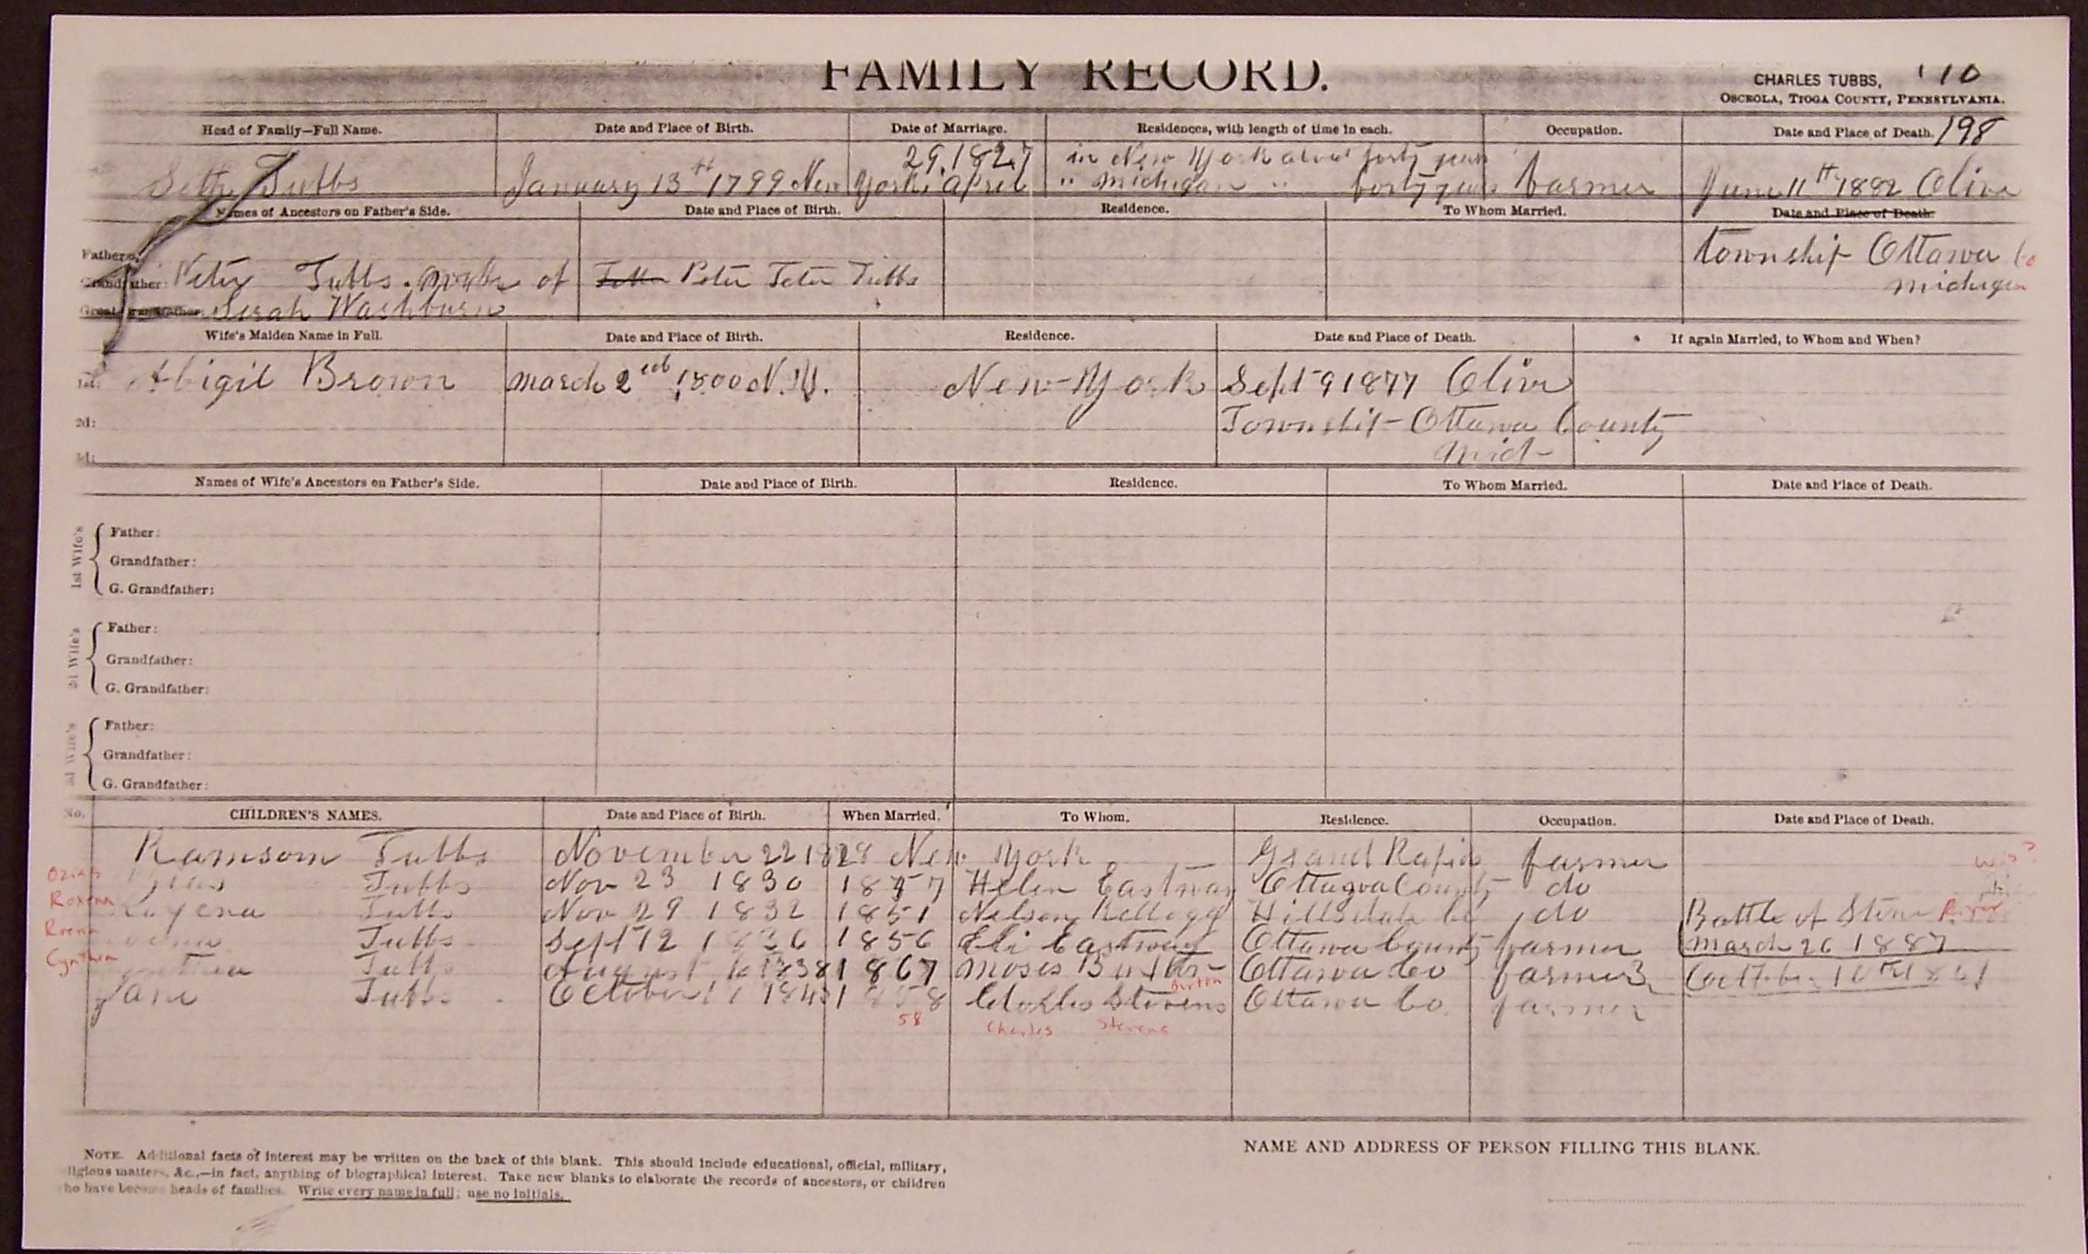 FAMILY RECORD.
CHARLES TUBBS, '10
OSCEOLA, TIOGA COUNTY, PENNSYLVANIA.
198
Head of Family—Full Name. Date and Place of Birth. Date of Marriage. Residences, with length of time in each. Occupation. Date and Place of Death.
29, 1827 in New York about forty years
Seth Tubbs January 13th 1799 New York. April " Michigan " forty years farmer June 11th 1892 Olive
Names of Ancestors on Father's Side. Date and Place of Birth. Residence. To Whom Married. Date and Place of Death.
Father: township Ottawa Co
Grandfather: Peter Tubbs. of Peter Teter Tubbs Michigan
Great grandfather: Sarah Washburn
Wife's Maiden Name in Full. Date and Place of Birth. Residence. Date and Place of Death. If again Married, to Whom and When?
1st: Abigil Brown March 2ed 1800 N.Y. New-York Sept 9 1877 Olive
2d: Township Ottawa County
3d: Mich
Names of Wife's Ancestors on Father's Side. Date and Place of Birth. Residence. To Whom Married. Date and Place of Death.
1st Wife's
Father:
Grandfather:
G. Grandfather:
2d Wife's
Father:
Grandfather:
G. Grandfather:
3d Wife's
Father:
Grandfather:
G. Grandfather:
No. CHILDREN'S NAMES. Date and Place of Birth. When Married. To Whom. Residence. Occupation. Date and Place of Death.
Ramsom Tubbs November 22 1828 New York Grand Rapids farmer
Ozias Tubbs Nov 23 1830 Helen Eastway Ottagva County do
Roxena Tubbs Nov 29 1832 1851 Nelson Kellogg Hillsdale Co do Battle of Stone River
Roena Tubbs Sept 12 1836 1856 Eli Eastway Ottawa County farmer March 26 1887
Cynthia Tubbs August 1838 1867 Moses Ottawa Co farmer
Burton
Jane Tubbs October 1 8 Stevens Ottawa Co farmer
58 Charles Stevens
NOTE. Additional facts of interest may be written on the back of this blank. This should include educational, official, military,
religious matters, &c.,—in fact, anything of biographical interest. Take new blanks to elaborate the records of ancestors, or children
who have become heads of families. Write every name in full; use no initials.
NAME AND ADDRESS OF PERSON FILLING THIS BLANK.